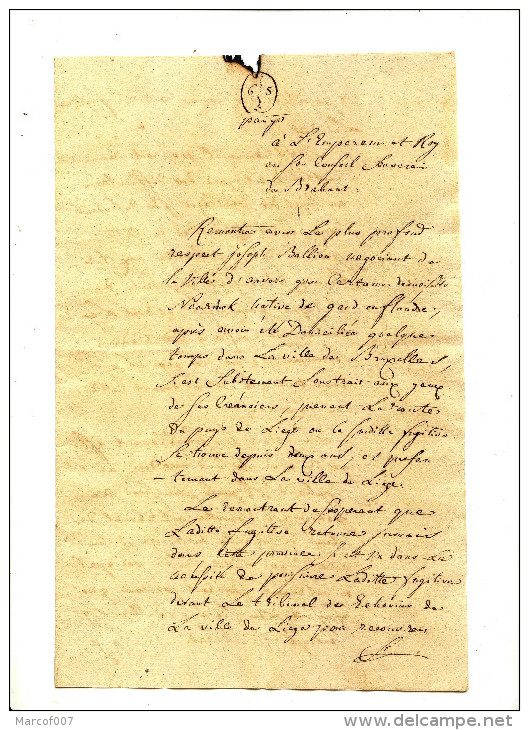 6 S
à L'Empereur et Roy
en son Conseil Souverain
de Brabant.
Remontre avec le plus profond
respect joseph Ballion negociant de
la ville d'anvers que certaine demoiselle
native de gand en flandre,
après avoir été Domiciliée quelque
temps dans La ville de Bruxelles,
s'est Subitement soustrait aux yeux
de ses Créanciers, prenant La route
du pays de Liege ou la suditte fugitive
se trouve depuis deux ans, et presen
-tement dans La ville de Liège.
Le remontrant desesperant que
Laditte fugitive retourne jamais
dans cette province, s'est vu dans La
necessité de poursuivre Laditte fugitive
devant Le tribunal des Echevins de
La ville de Liege pour recouvrer
Marcof007
www.delcampe.net